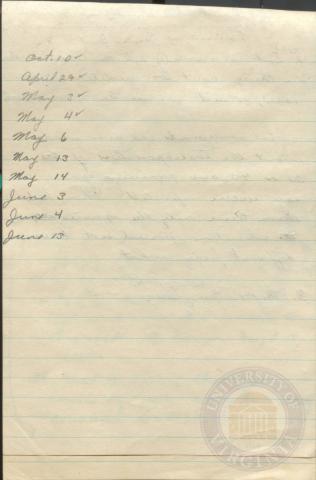 Oct. 10 ✓
April 29 ✓
May 3 ✓
May 4 ✓
May 6
May 13
May 14
June 3
June 4
June 15
UNIVERSITY OF VIRGINIA